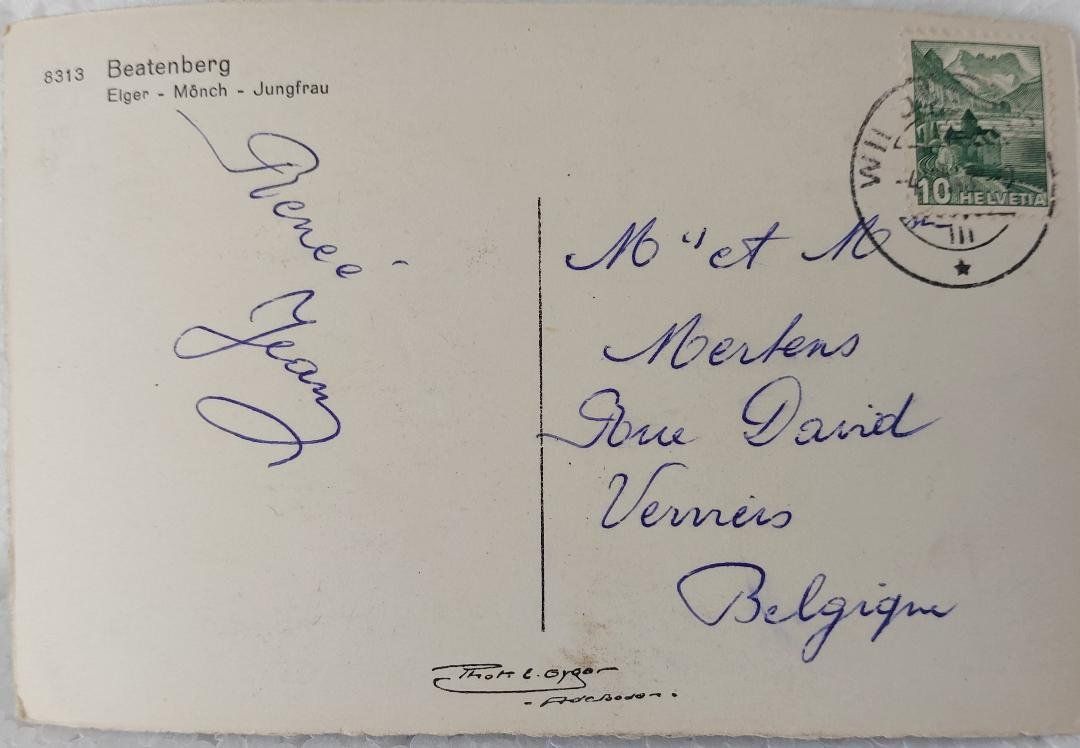 8313 Beatenberg
Eiger - Mönch - Jungfrau
Renée
Jean
10 HELVETIA
WIL
III
M et M
Mertens
Rue David
Verviers
Belgique
Phot. E. Gyger
- Adelboden -